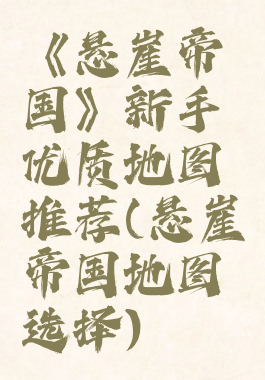 《悬崖帝
国》新手
优质地图
推荐(悬崖
帝国地图
选择)